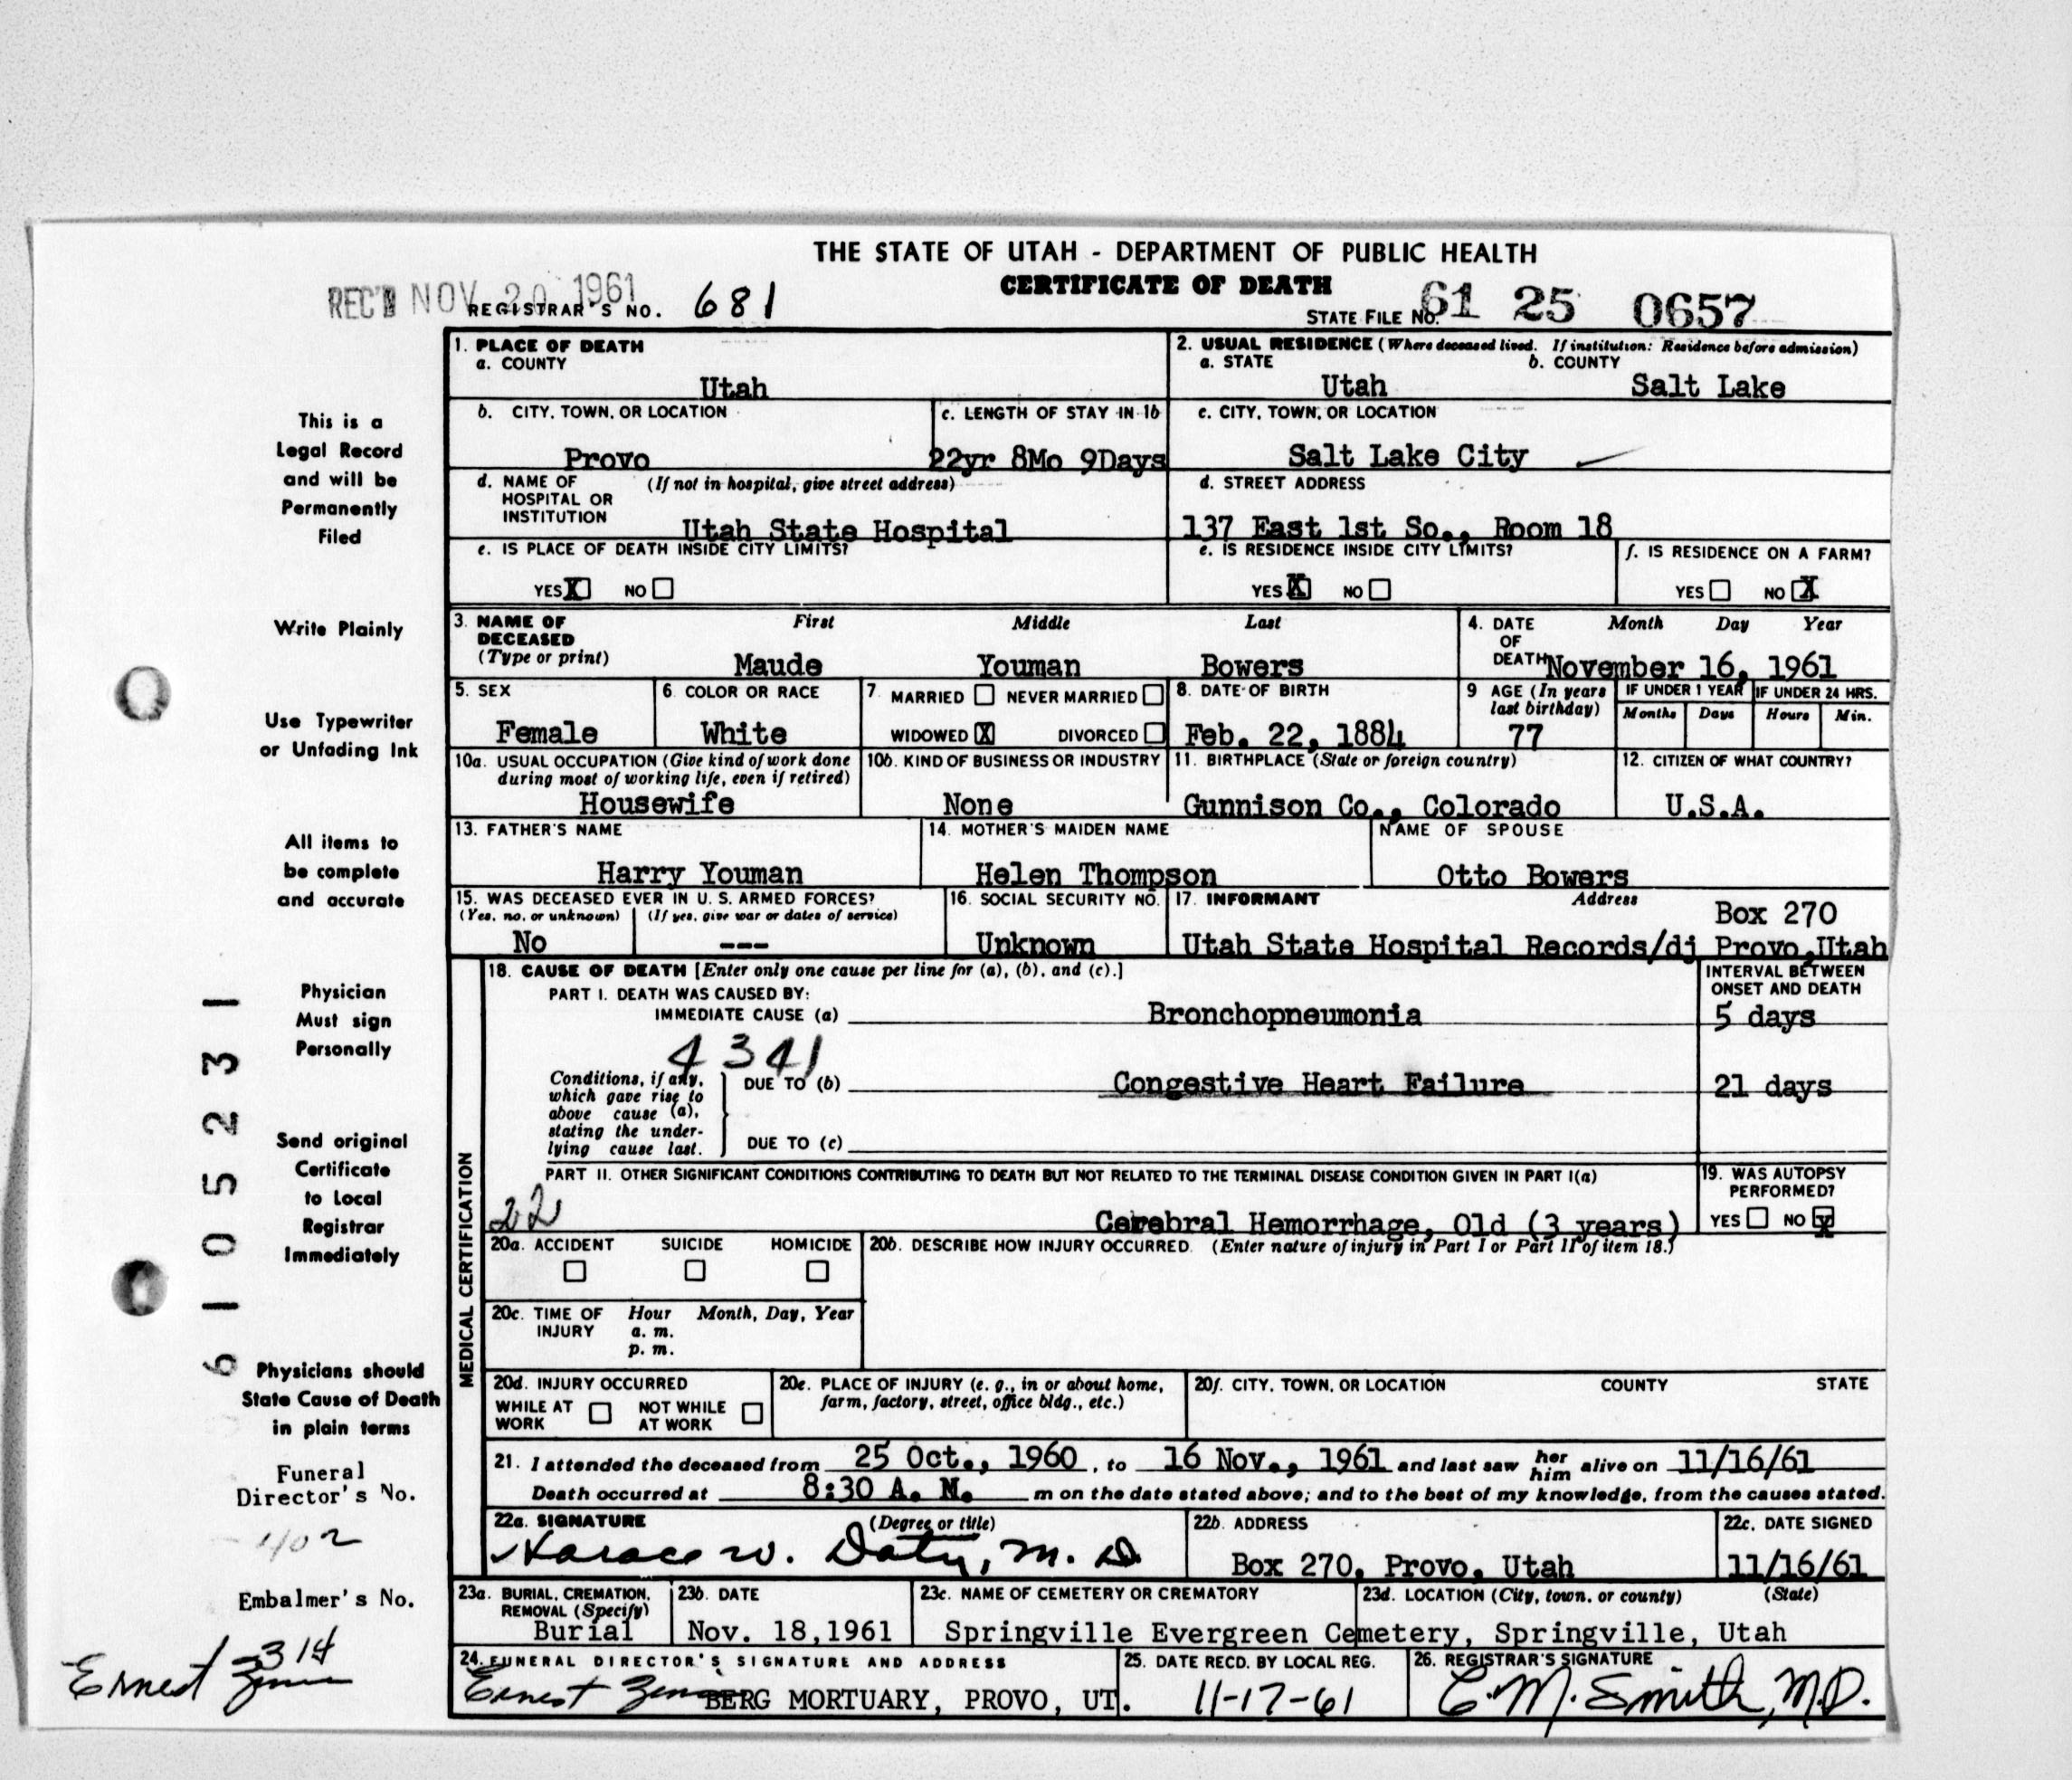 THE STATE OF UTAH - DEPARTMENT OF PUBLIC HEALTH
CERTIFICATE OF DEATH
REC'D NOV 20 1961
REGISTRAR'S NO. 681
STATE FILE NO. 61 25 0657
This is a
Legal Record
and will be
Permanently
Filed
Write Plainly
Use Typewriter
or Unfading Ink
All items to
be complete
and accurate
Physician
Must sign
Personally
Send original
Certificate
to Local
Registrar
Immediately
Physicians should
State Cause of Death
in plain terms
Funeral
Director's No.
402
Embalmer's No.
314
Ernest
6105231
1. PLACE OF DEATH
a. COUNTY
Utah
2. USUAL RESIDENCE (Where deceased lived. If institution: Residence before admission)
a. STATE b. COUNTY
Utah Salt Lake
b. CITY, TOWN, OR LOCATION
Provo
c. LENGTH OF STAY IN 1b
22yr 8Mo 9Days
c. CITY, TOWN, OR LOCATION
Salt Lake City
d. NAME OF (If not in hospital, give street address)
HOSPITAL OR
INSTITUTION Utah State Hospital
d. STREET ADDRESS
137 East 1st So., Room 18
e. IS PLACE OF DEATH INSIDE CITY LIMITS?
YES X NO
e. IS RESIDENCE INSIDE CITY LIMITS?
YES X NO
f. IS RESIDENCE ON A FARM?
YES NO X
3. NAME OF First Middle Last
DECEASED
(Type or print) Maude Youman Bowers
4. DATE Month Day Year
OF
DEATH November 16, 1961
5. SEX
Female
6. COLOR OR RACE
White
7. MARRIED NEVER MARRIED
WIDOWED X DIVORCED
8. DATE OF BIRTH
Feb. 22, 1884
9 AGE (In years
last birthday)
77
IF UNDER 1 YEAR
Months Days
IF UNDER 24 HRS.
Hours Min.
10a. USUAL OCCUPATION (Give kind of work done
during most of working life, even if retired)
Housewife
10b. KIND OF BUSINESS OR INDUSTRY
None
11. BIRTHPLACE (State or foreign country)
Gunnison Co., Colorado
12. CITIZEN OF WHAT COUNTRY?
U.S.A.
13. FATHER'S NAME
Harry Youman
14. MOTHER'S MAIDEN NAME
Helen Thompson
NAME OF SPOUSE
Otto Bowers
15. WAS DECEASED EVER IN U. S. ARMED FORCES?
(Yes, no, or unknown) (If yes, give war or dates of service)
No ---
16. SOCIAL SECURITY NO.
Unknown
17. INFORMANT Address
Box 270
Utah State Hospital Records/dj Provo,Utah
MEDICAL CERTIFICATION
18. CAUSE OF DEATH [Enter only one cause per line for (a), (b), and (c).]
PART I. DEATH WAS CAUSED BY:
IMMEDIATE CAUSE (a) Bronchopneumonia
INTERVAL BETWEEN
ONSET AND DEATH
5 days
4341
Conditions, if any,
which gave rise to
above cause (a),
stating the under-
lying cause last.
DUE TO (b) Congestive Heart Failure 21 days
DUE TO (c)
PART II. OTHER SIGNIFICANT CONDITIONS CONTRIBUTING TO DEATH BUT NOT RELATED TO THE TERMINAL DISEASE CONDITION GIVEN IN PART I(a)
22
Cerebral Hemorrhage, Old (3 years)
19. WAS AUTOPSY
PERFORMED?
YES NO X
20a. ACCIDENT SUICIDE HOMICIDE
20b. DESCRIBE HOW INJURY OCCURRED. (Enter nature of injury in Part I or Part II of item 18.)
20c. TIME OF Hour Month, Day, Year
INJURY a. m.
p. m.
20d. INJURY OCCURRED
WHILE AT NOT WHILE
WORK AT WORK
20e. PLACE OF INJURY (e. g., in or about home,
farm, factory, street, office bldg., etc.)
20f. CITY, TOWN, OR LOCATION COUNTY STATE
21. I attended the deceased from 25 Oct., 1960, to 16 Nov., 1961 and last saw her him alive on 11/16/61
Death occurred at 8:30 A. M. m on the date stated above; and to the best of my knowledge, from the causes stated.
22a. SIGNATURE (Degree or title)
Horace W. Daty, M. D.
22b. ADDRESS
Box 270, Provo, Utah
22c. DATE SIGNED
11/16/61
23a. BURIAL, CREMATION,
REMOVAL (Specify)
Burial
23b. DATE
Nov. 18,1961
23c. NAME OF CEMETERY OR CREMATORY
23d. LOCATION (City, town, or county) (State)
Springville Evergreen Cemetery, Springville, Utah
24. FUNERAL DIRECTOR'S SIGNATURE AND ADDRESS
Ernest BERG MORTUARY, PROVO, UT.
25. DATE RECD. BY LOCAL REG.
11-17-61
26. REGISTRAR'S SIGNATURE
C. M. Smith, M.D.